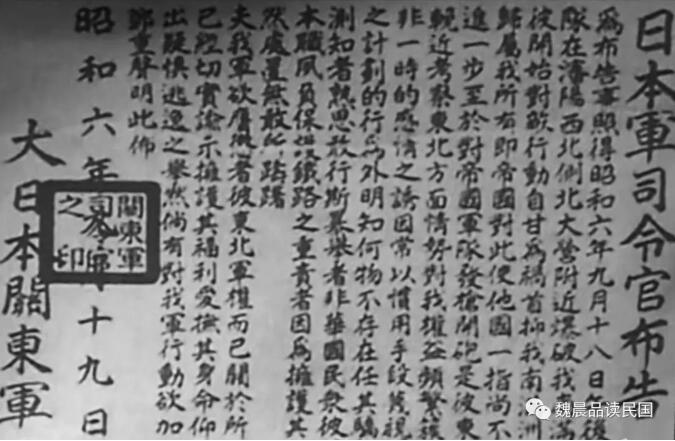 日本軍司令官布告
爲布告事照得昭和六年九月十八日後
隊在瀋陽西北側北大營附近爆破我
彼開始對敵行動自甘爲禍首抑我南洲
歸屬我所有即帝國對此使他國一指尚不
進一步至於對帝國軍隊發槍開砲是彼東
輓近考察東北方面情勢對我權益頻繁
非一時的感情之誘因常以慣用手段蔑視
之計劃的行爲外明知何物不存在任其驕
測知者熟思敢行斯暴舉者非華國民衆彼
本職夙負保護鐵路之重責者因爲擁護其
然處置無敢躊躇
夫我軍欲膺懲者彼東北軍權而已關於所
已經切實諭示擁護其福利愛撫其身命仰
出疑懼逃逸之舉然倘有對我軍行動欲加
鄭重聲明此佈
昭和六年月十九日
關東軍
司令官
之印
大日本關東軍
魏晨品读民国